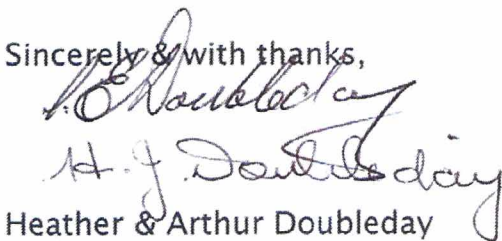 Sincerely & with thanks,
A.E Doubleday
H. J. Doubleday
Heather & Arthur Doubleday